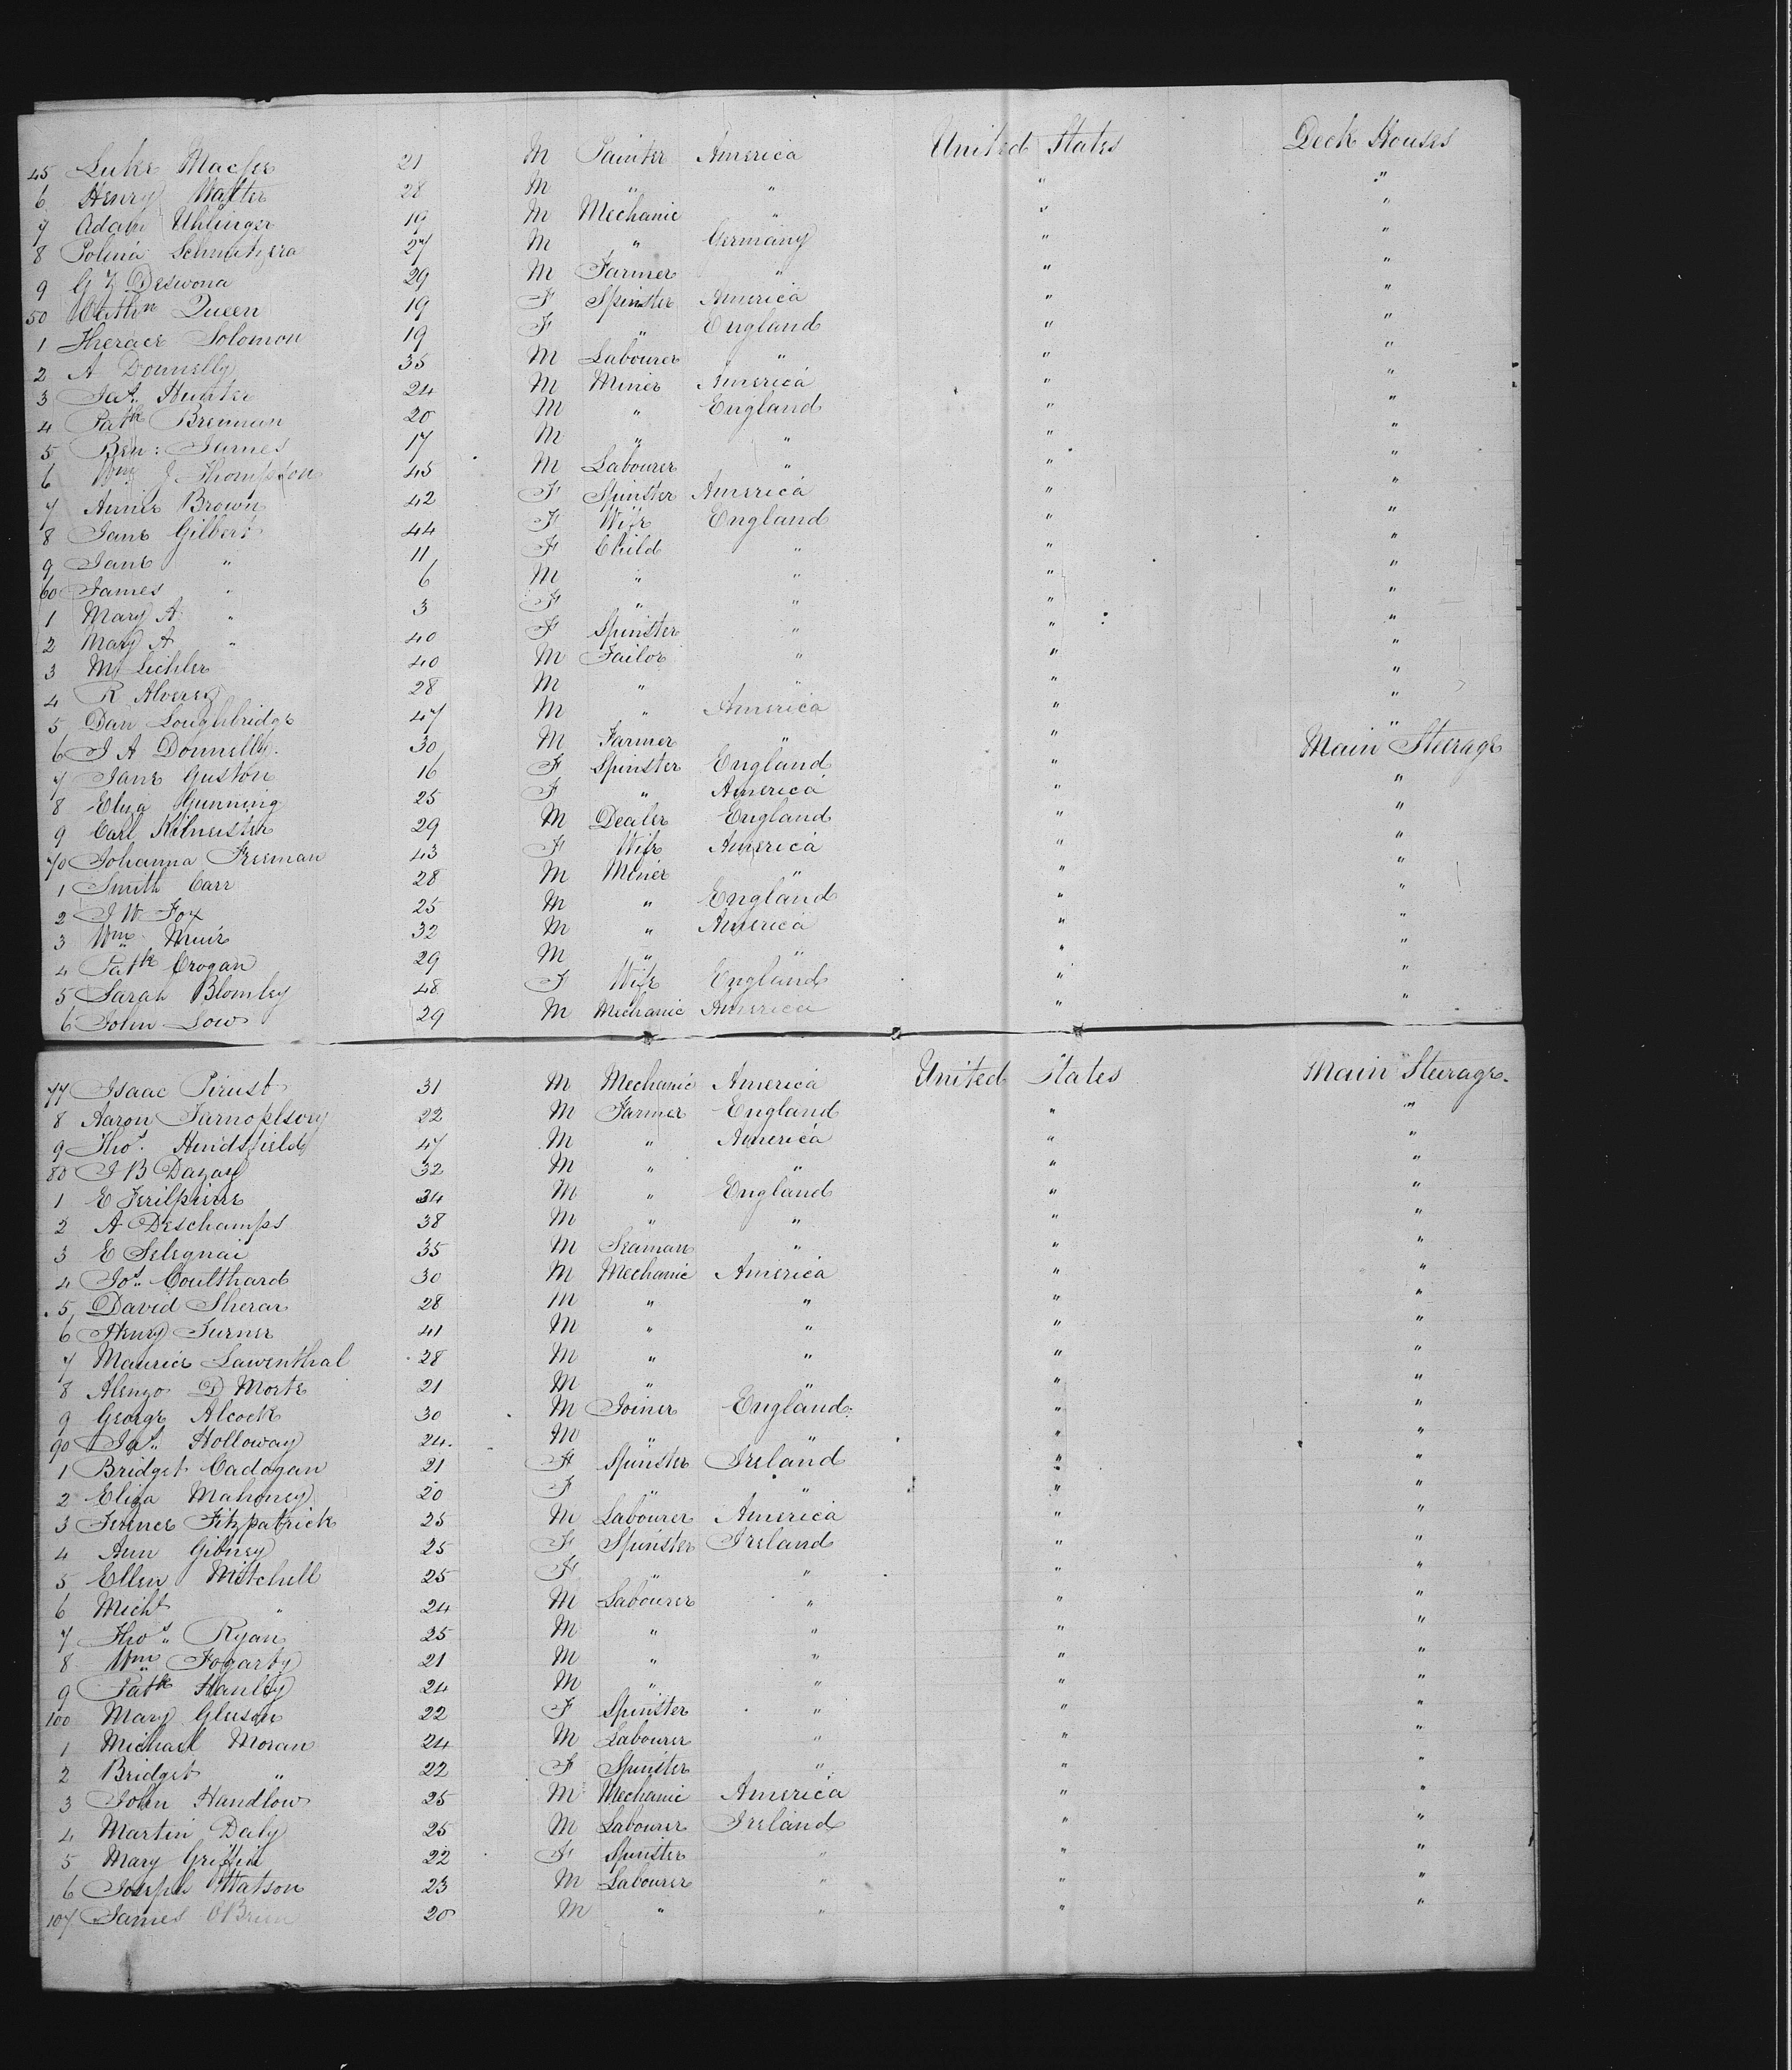 45 Luke Macfee 21 M Painter America United States Deck Houses
6 Henry Walter 28 M " " " "
7 Adam Uhlinger 19 M Mechanic " " "
8 Polina 27 M " Germany " "
9 G Z Desvona 29 M Farmer " " "
50 Queen 19 F Spinster America " "
1 Solomon 19 F " England " "
2 A Donnelly 35 M Labourer " " "
3 Jas. Hunter 24 M Miner America " "
4 Patk Brennan 20 M " England " "
5 Ben: James 17 M " " " "
6 Wm J Thompson 45 M Labourer " " "
7 Annie Brown 42 F Spinster America " "
8 Jane Gilbert 44 F Wife England " "
9 Jane " 11 F Child " " "
60 James " 6 M " " " "
1 Mary A " 3 F " " " "
2 Mary A " 40 F Spinster " " "
3 M Lichler 40 M Tailor " " "
4 R Alverez 28 M " " " "
5 Dan Loughbridge 47 M " America " "
6 J A Donnelly. 30 M Farmer " " Main Steerage
7 Jane Guston 16 F Spinster England " "
8 Eliza Gunning 25 F " America " "
9 Carl Kilmister 29 M Dealer England " "
70 Johanna Freeman 43 F Wife America " "
1 Smith Carr 28 M Miner " " "
2 J W Fox 25 M " England " "
3 Wm Muir 32 M " America " "
4 Patk Crogan 29 M " " " "
5 Sarah Blomley 48 F Wife England " "
6 John Low 29 M Mechanic America " "
77 Isaac Pirust 31 M Mechanic America United States Main Steerage.
8 Aaron 22 M Farmer England " "
9 Thos. Hindsfield 47 M " America " "
80 J B Dazay 32 M " " " "
1 E 34 M " England " "
2 A Deschamps 38 M " " " "
3 E Selegnai 35 M Seaman " " "
4 Jos. Coulthard 30 M Mechanic America " "
5 David Sherar 28 M " " " "
6 Henry Turner 41 M " " " "
7 Maurice Lawenthal 28 M " " " "
8 Alenzo D Morte 21 M " " " "
9 George Alcock 30 M Joiner England " "
90 Jas. Holloway 24. M " " " "
1 Bridget Cadogan 21 F Spinster Ireland " "
2 Eliza Mahoney 20 F " " " "
3 Fitzpatrick 25 M Labourer America " "
4 Ann Gibney 25 F Spinster Ireland " "
5 Ellen Mitchell 25 F " " " "
6 Michl " 24 M Labourer " " "
7 Thos. Ryan 25 M " " " "
8 Wm Fogarty 21 M " " " "
9 Patk Hanley 24 M " " " "
100 Mary Gleson 22 F Spinster " " "
1 Michael Moran 24 M Labourer " " "
2 Bridget " 22 F Spinster " " "
3 John Handlow 25 M Mechanic America " "
4 Martin Daly 25 M Labourer Ireland " "
5 Mary Griffin 22 F Spinster " " "
6 Joseph Watson 23 M Labourer " " "
107 James O'Brien 20 M " " " "